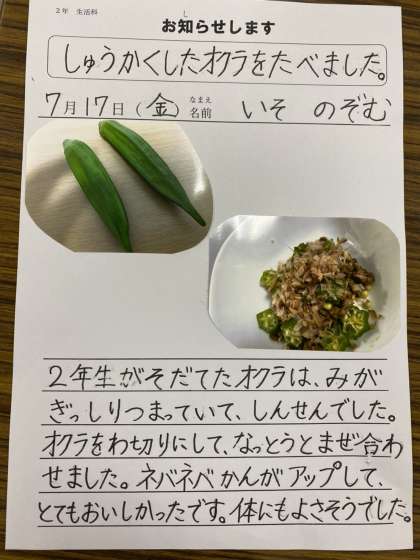 2年 生活科
お知らせします
し
しゅうかくしたオクラをたべました。
7月17日(金) 名前 いそ のぞむ
なまえ
2年生がそだてたオクラは、みが
ぎっしりつまっていて、しんせんでした。
オクラをわ切りにして、なっとうとまぜ合わ
せました。ネバネバかんがアップして、
とてもおいしかったです。体にもよさそうでした。